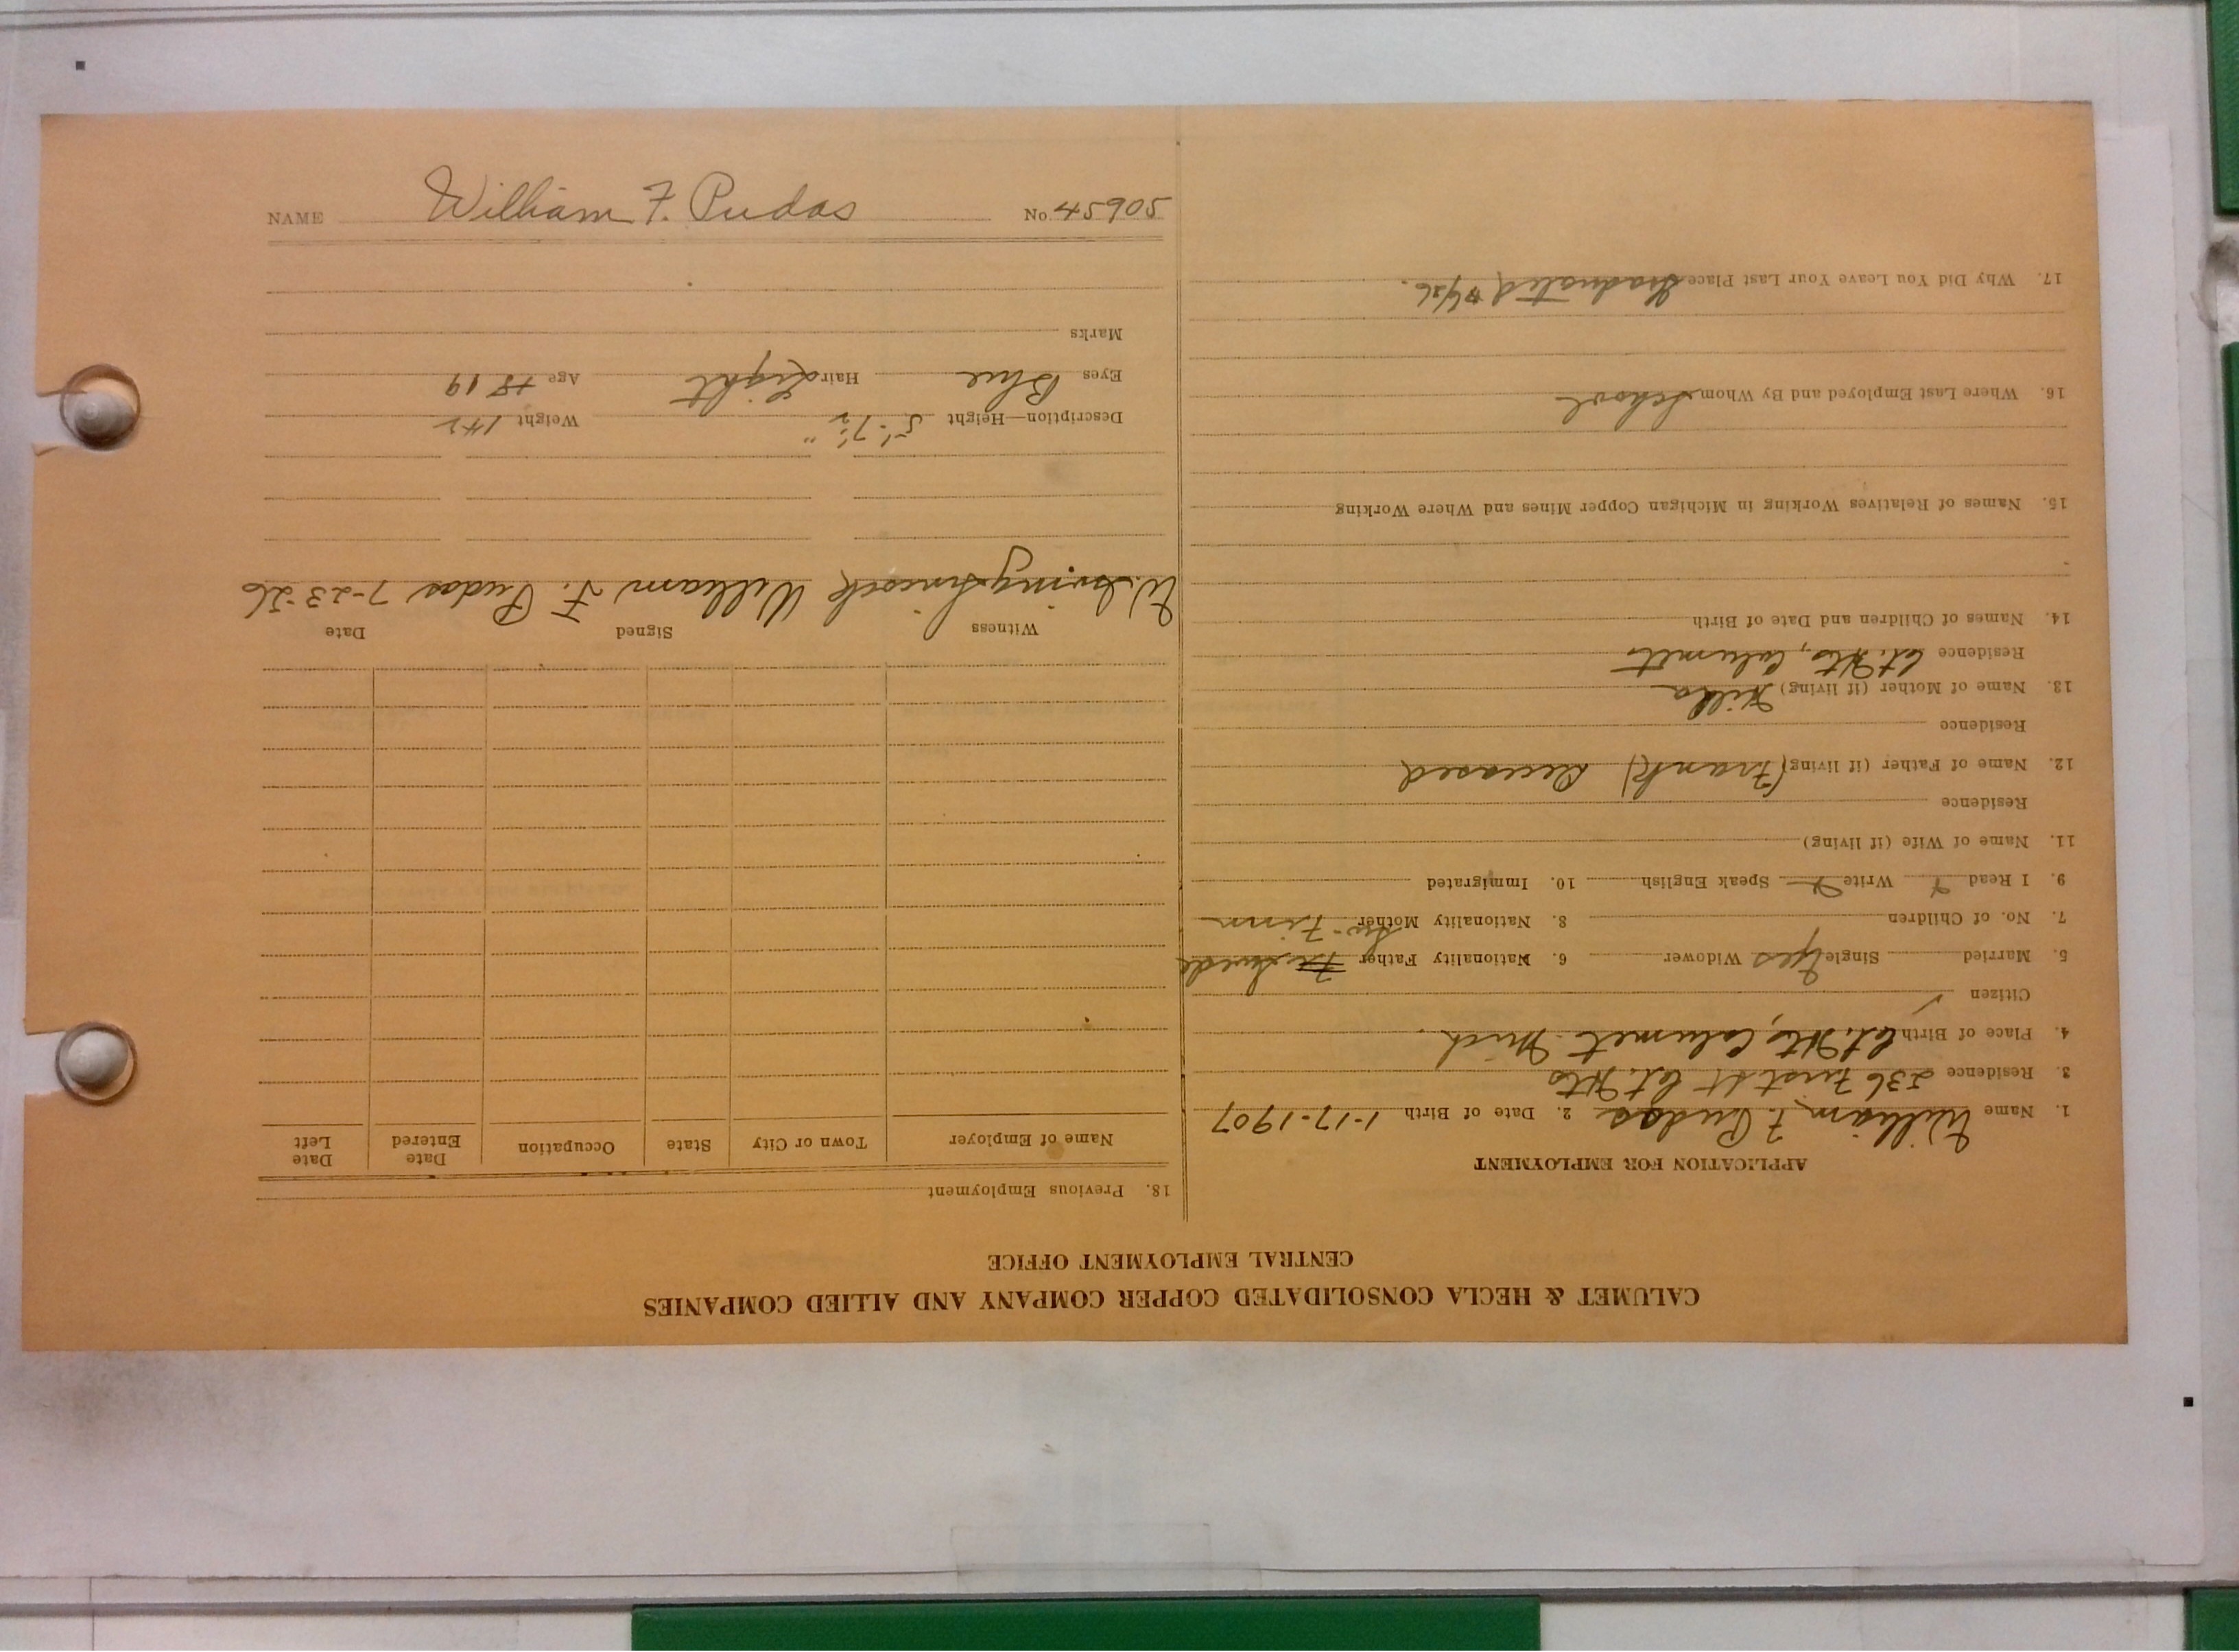 CALUMET & HECLA CONSOLIDATED COPPER COMPANY AND ALLIED COMPANIES
CENTRAL EMPLOYMENT OFFICE
APPLICATION FOR EMPLOYMENT
1. Name William F. Pudas 2. Date of Birth 1-17-1907
3. Residence 236 First St Cal. Hts
4. Place of Birth Cal. Hts, Calumet Mich.
Citizen ✓
5. Married Single yes Widower 6. Nationality Father Swede
7. No. of Children 8. Nationality Mother Sw-Finn
9. I Read Write Speak English 10. Immigrated
11. Name of Wife (if living)
Residence
12. Name of Father (if living) (Frank) Deceased
Residence
13. Name of Mother (if living) Hilda
Residence Cal. Hts, Calumet
14. Names of Children and Date of Birth
15. Names of Relatives Working in Michigan Copper Mines and Where Working
16. Where Last Employed and By Whom School
17. Why Did You Leave Your Last Place Graduated
18. Previous Employment
Name of Employer Town or City State Occupation Date Entered Date Left
Witness Signed Date
William F. Pudas 7-23-26
Description—Height 5'-7½" Weight 142
Eyes Blue Hair Light Age 18 19
Marks
NAME William F. Pudas No. 45905